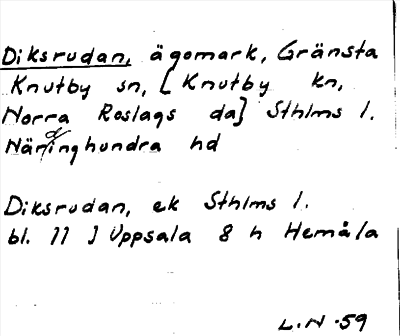 Diksrudan, ägomark, Gränsta
Knutby sn, [Knutby kn,
Norra Roslags da] Sthlms l.
Närdinghundra hd
Diksrudan, ek Sthlms l.
bl. 11 J Uppsala 8 h Hemåla
L.N -59